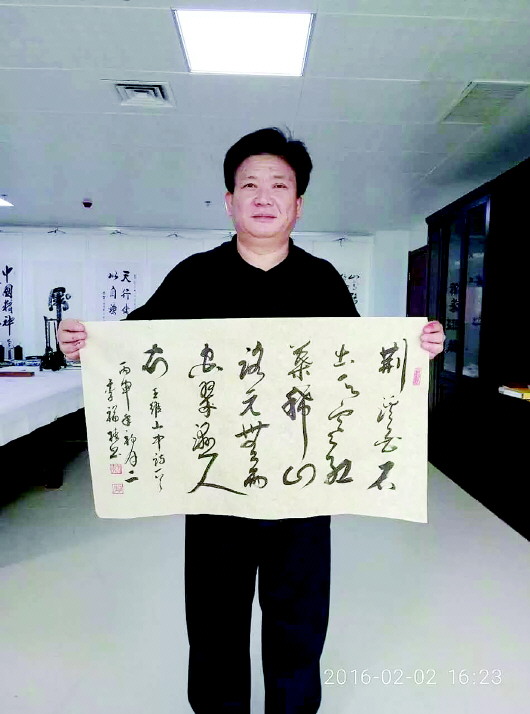 荆溪白石
出天寒红
葉稀山
路元無雨
空翠濕人
衣 王維山中詩一首
丙申年初月二
李福
中國精神
天行
以自強
2016-02-02 16:23